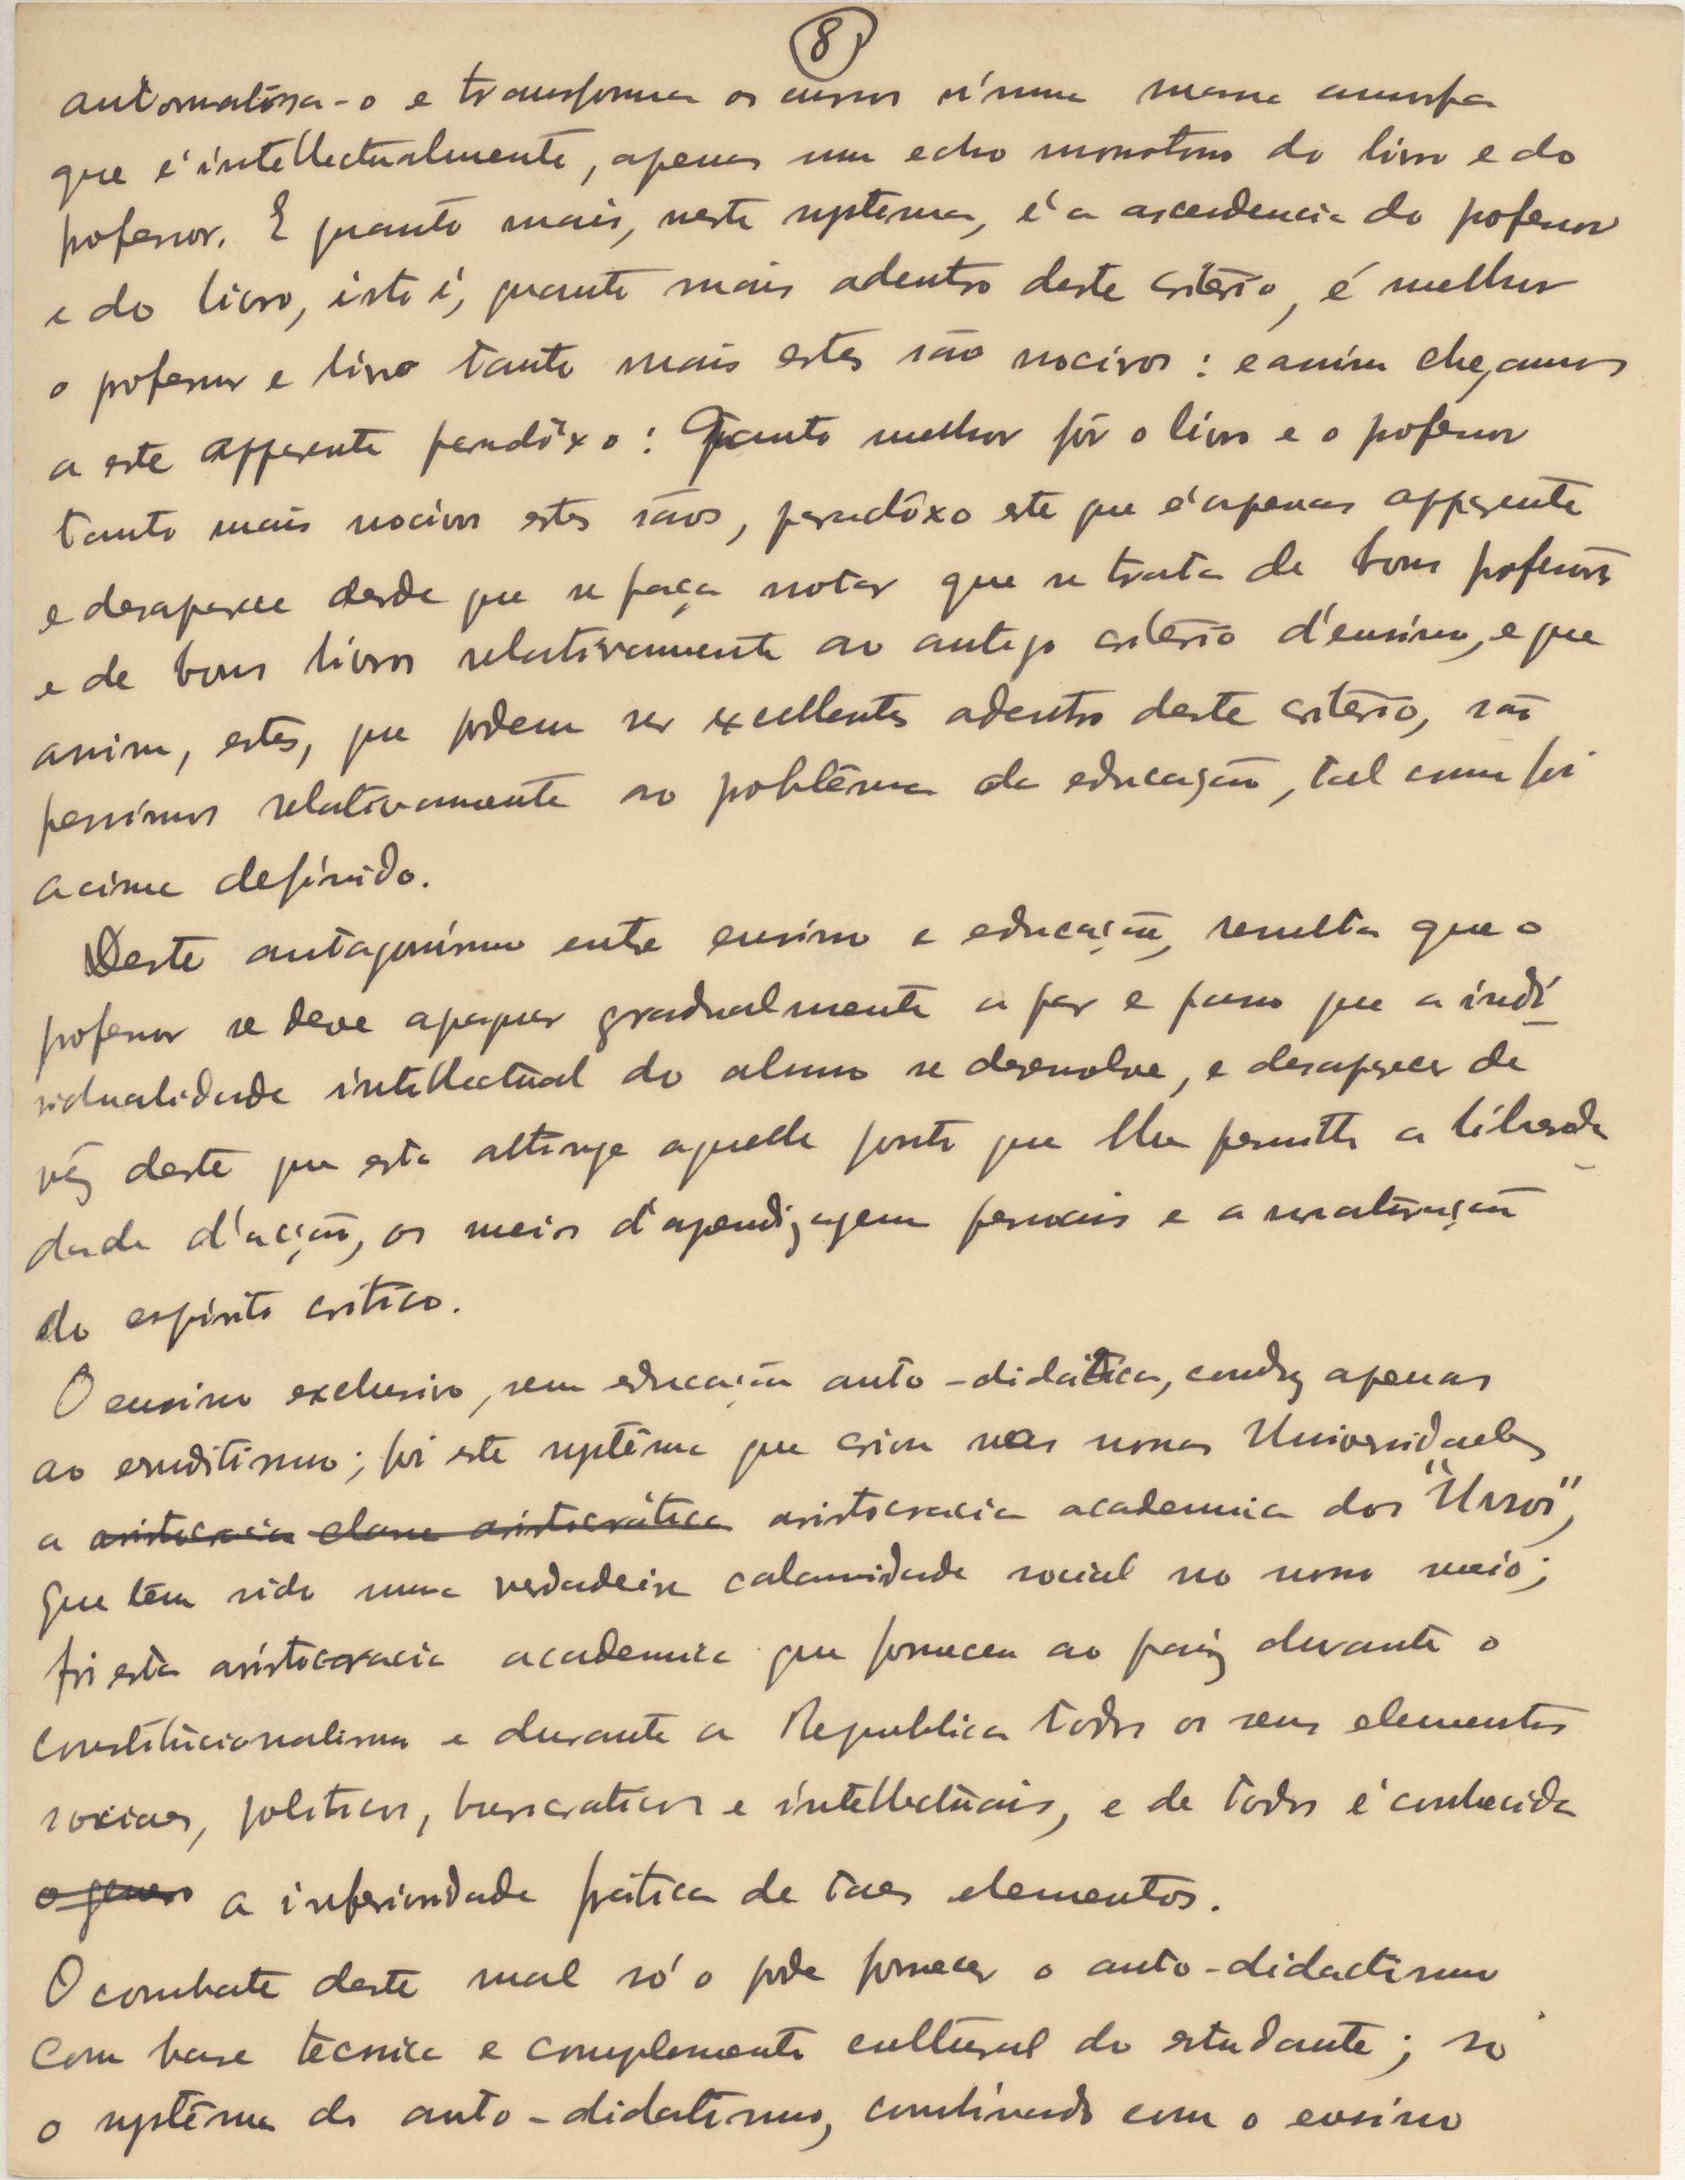 8
automatisa-o e transforma os cursos n'uma massa amorfa
que é intellectualmente, apenas um echo monotono do livro e do
professor. E quanto mais, neste systema, é a ascendencia do professor
e do livro, isto é, quanto mais adentro deste critério, é melhor
o professor e livro tanto mais estes são nocivos: e assim chegamos
a este apparente paradôxo: Quanto melhor fôr o livro e o professor
tanto mais nocivos estes sãos, paradôxo este que é apenas apparente
e desaparece desde que se faça notar que se trata de bons professores
e de bons livros relativamente ao antigo critério d'ensino, e que
assim, estes, que podem ser excellentes adentro deste critério, são
pessimos relativamente ao problêma da educação, tal como foi
acima definido.
Deste antagonismo entre ensino e educação, resulta que o
professor se deve apagar gradualmente a par e passo que a indi
vidualidade intellectual do aluno se desenvolve, e desaparecer de
vêz deste que esta attinge aquelle ponto que lhe permitte a liberda
dade d'acção, os meios d'aprendizagem pessoais e a maturação
do espirito critico.
O ensino exclusivo, sem educação auto-didática, conduz apenas
ao eruditismo; foi este systêma que criou nas nossas Universidades
a aristocracia classe aristocrática aristocracia academica dos "Ursos",
que têm sido uma verdadeira calamidade social no nosso meio;
foi esta aristocracia academica que forneceu ao paiz durante o
constitucionalismo e durante a Republica todos os seus elementos
sociaes, politicos, burocraticos e intellectuais, e de todos é conhecida
o genero a inferioridade prática de taes elementos.
O combate deste mal só o pode fornecer o auto-didactismo
com base tecnica e complemento cultural do estudante; só
o systêma do auto-didatismo, combinado com o ensino